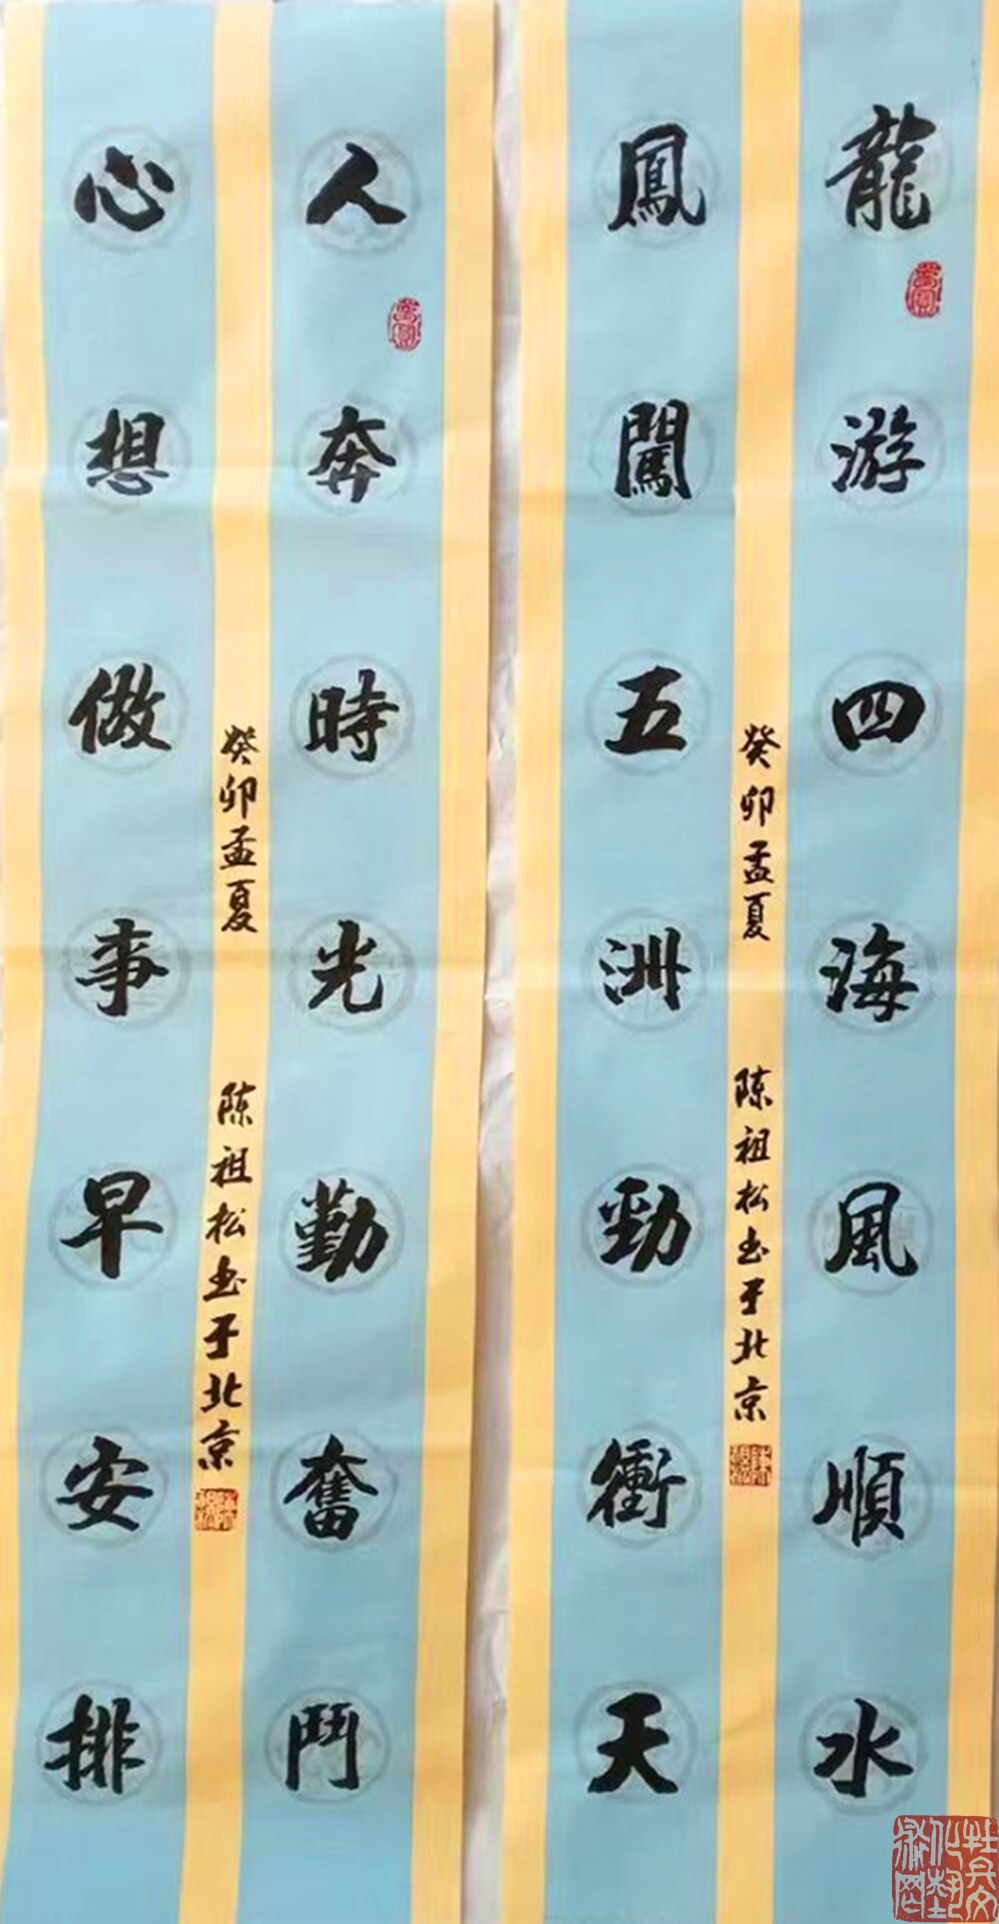 龍游四海風順水
鳳闖五洲勁衝天
癸卯孟夏 陈祖松书于北京
人奔時光勤奮鬥
心想做事早安排
癸卯孟夏 陈祖松书于北京